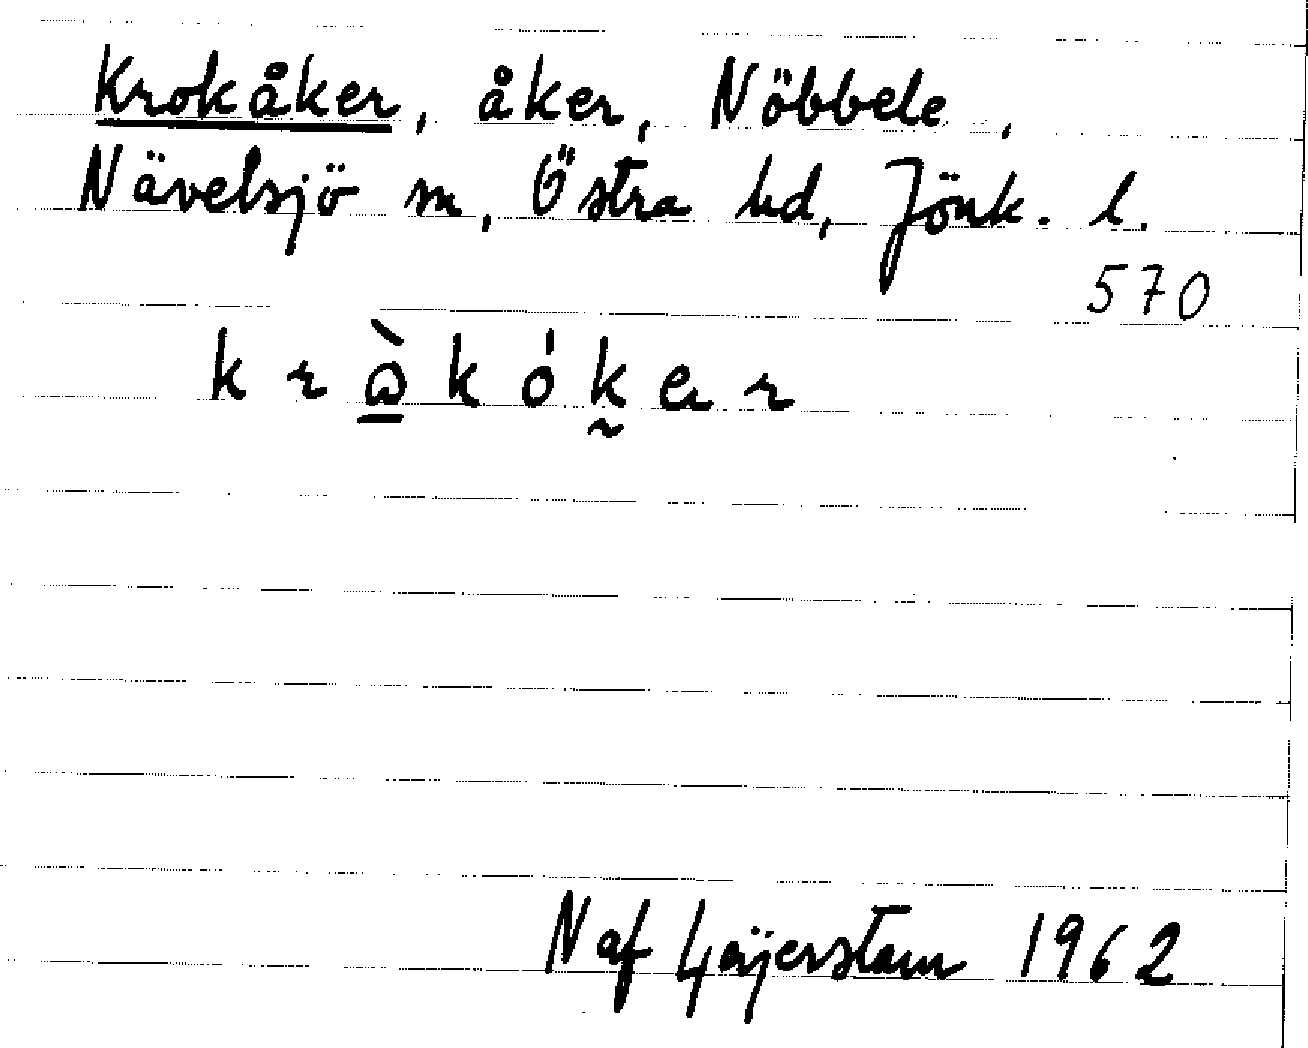 Krokåker, åker, Nöbbele,
Nävelsjö sn, Östra hd, Jönk. l.
570
k r ꝏ̀ k ó k̰ er r
N af Geijerstam 1962